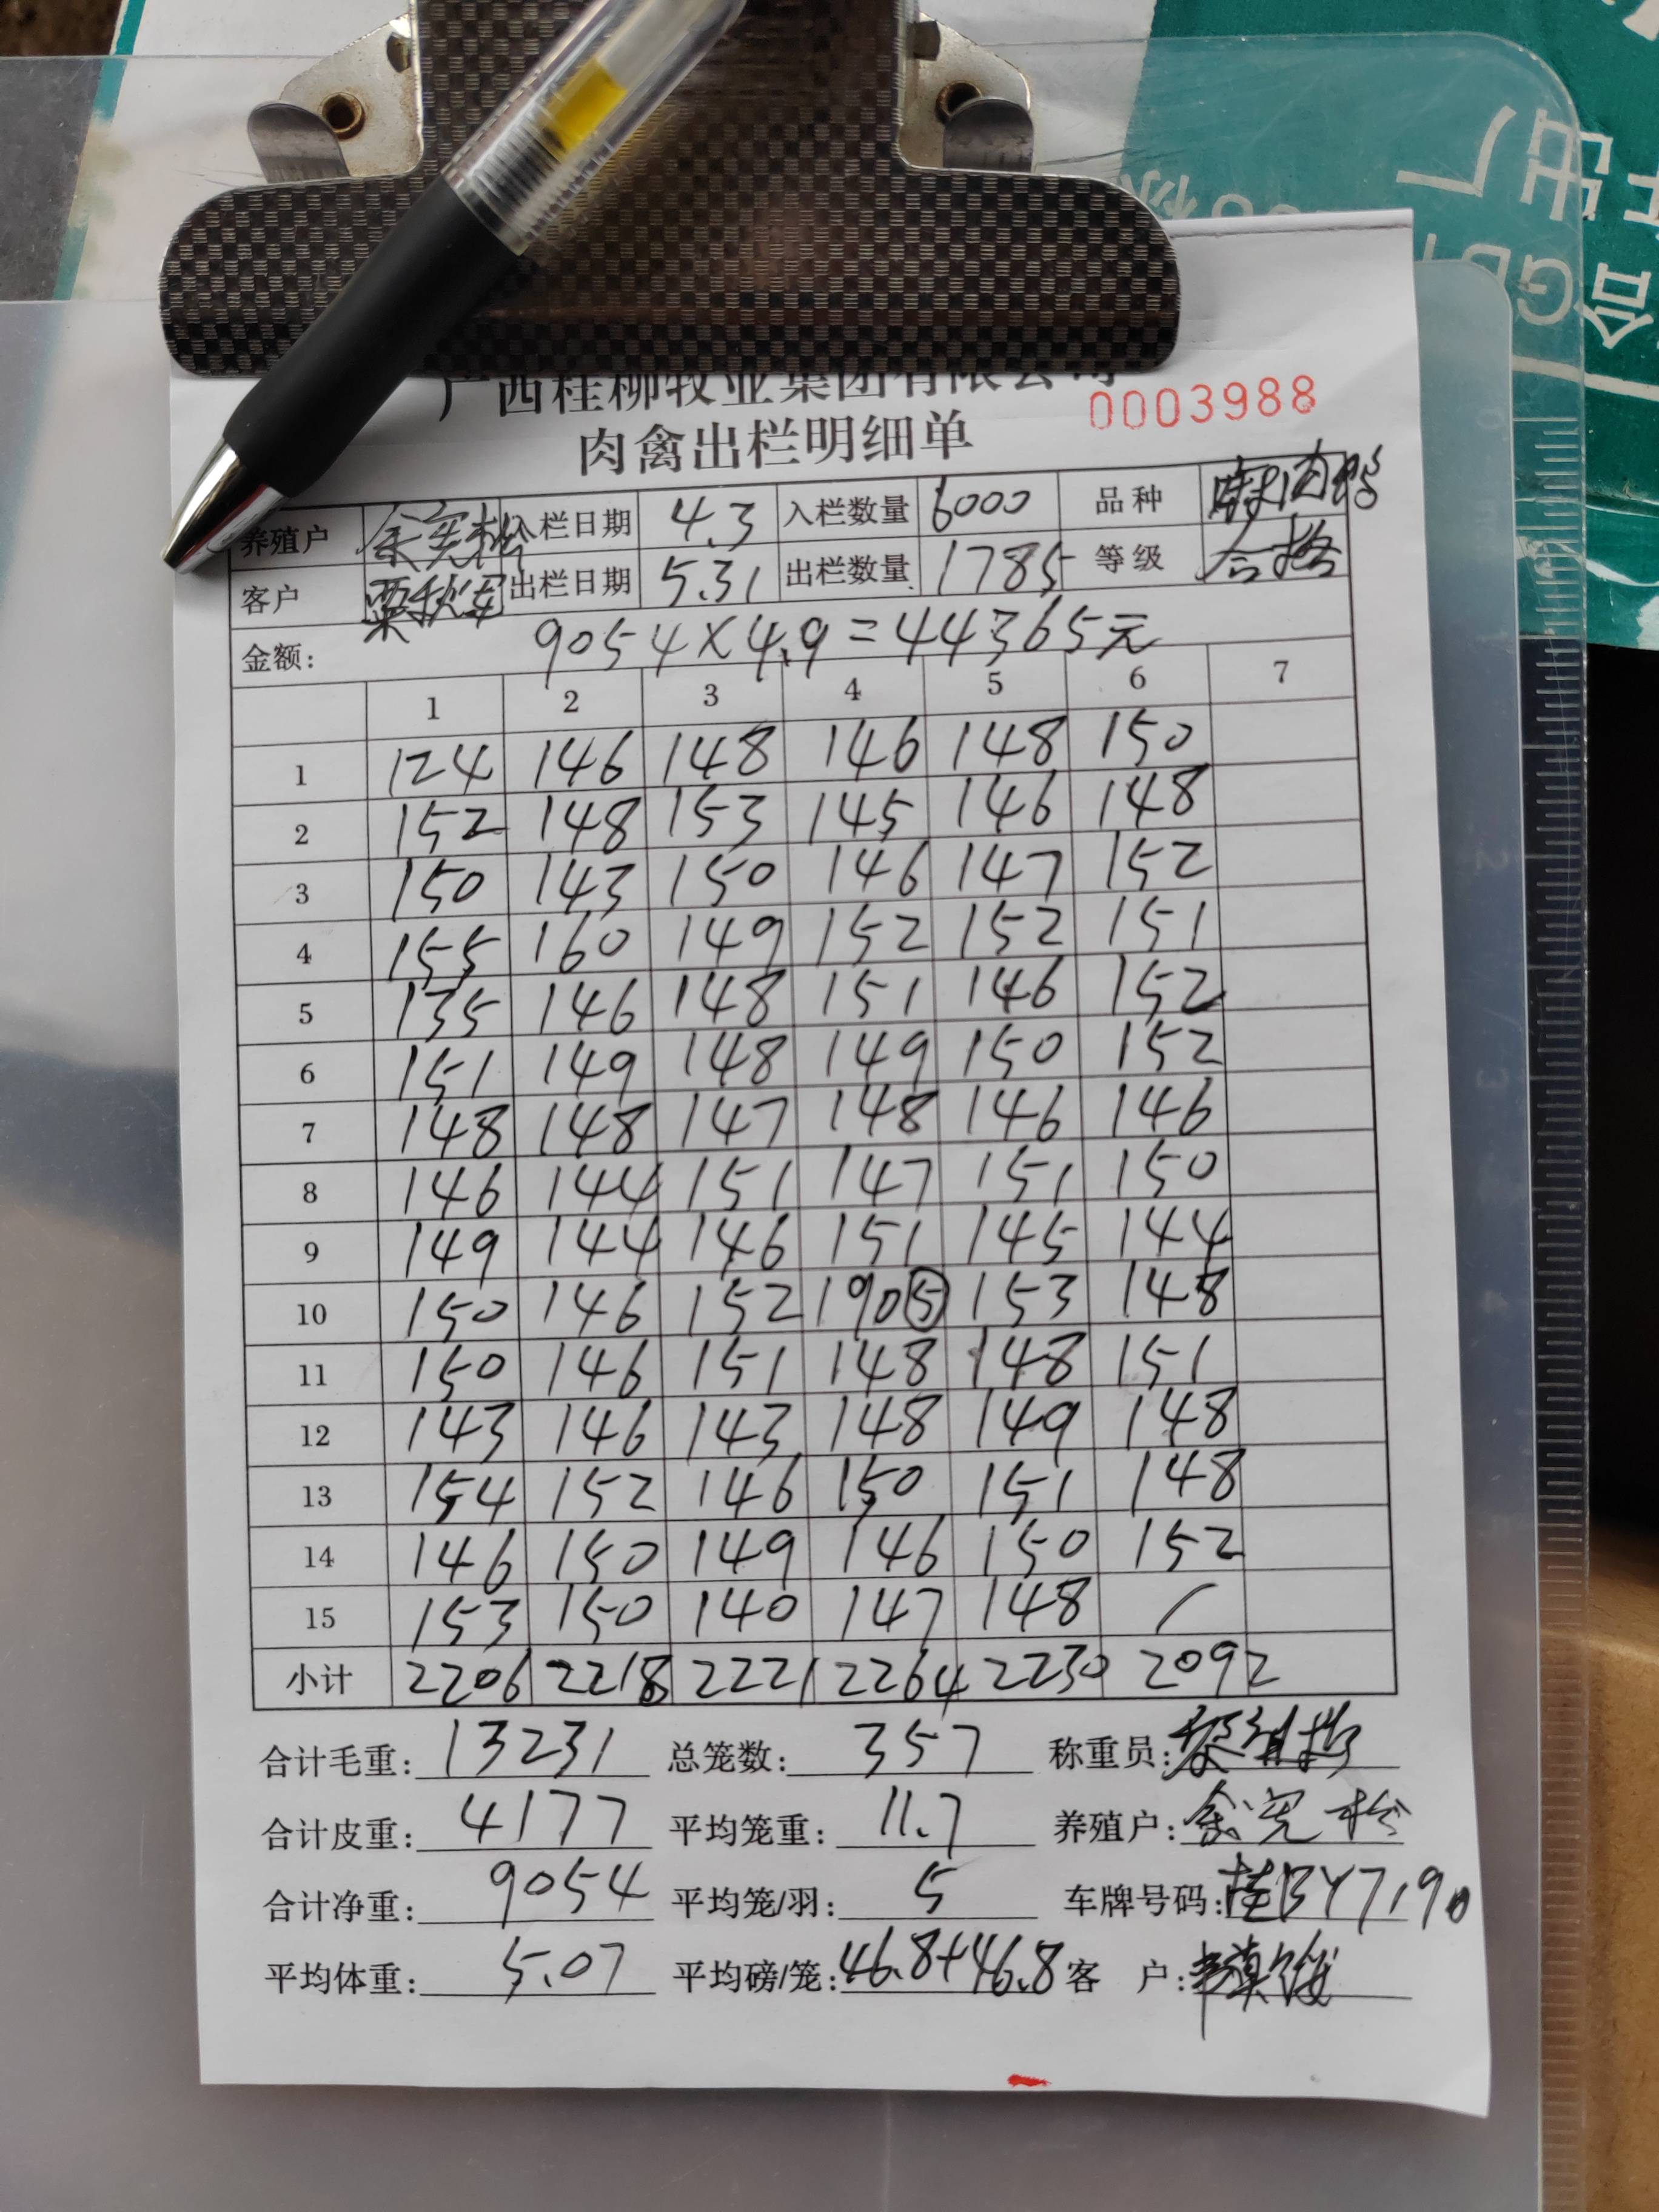 广西桂柳牧业集团有限公司
0003988
肉禽出栏明细单
养殖户 余宪松 入栏日期 4.3 入栏数量 6000 品种
客户 栗秋军 出栏日期 5.31 出栏数量 1785 等级 合格
金额: 9054×4.9=44365元
1 2 3 4 5 6 7
1 124 146 148 146 148 150
2 152 148 153 145 146 148
3 150 143 150 146 147 152
4 155 160 149 152 152 151
5 135 146 148 151 146 152
6 151 149 148 149 150 152
7 148 148 147 148 146 146
8 146 144 151 147 151 150
9 149 144 146 151 145 144
10 150 146 152 190⑤ 153 148
11 150 146 151 148 148 151
12 143 146 143 148 149 148
13 154 152 146 150 151 148
14 146 150 149 146 150 152
15 153 150 140 147 148 /
小计 2206 2218 2221 2264 2230 2092
合计毛重: 13231 总笼数: 357 称重员:
合计皮重: 4177 平均笼重: 11.7 养殖户: 余宪松
合计净重: 9054 平均笼/羽: 5 车牌号码: 桂BY7190
平均体重: 5.07 平均磅/笼: 46.8+46.8 客 户: